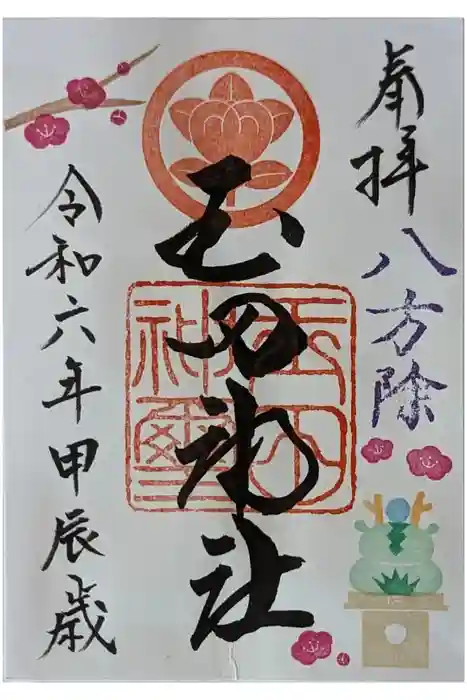 奉拝
八方除
玉田神社
玉田
神璽
令和六年甲辰歳